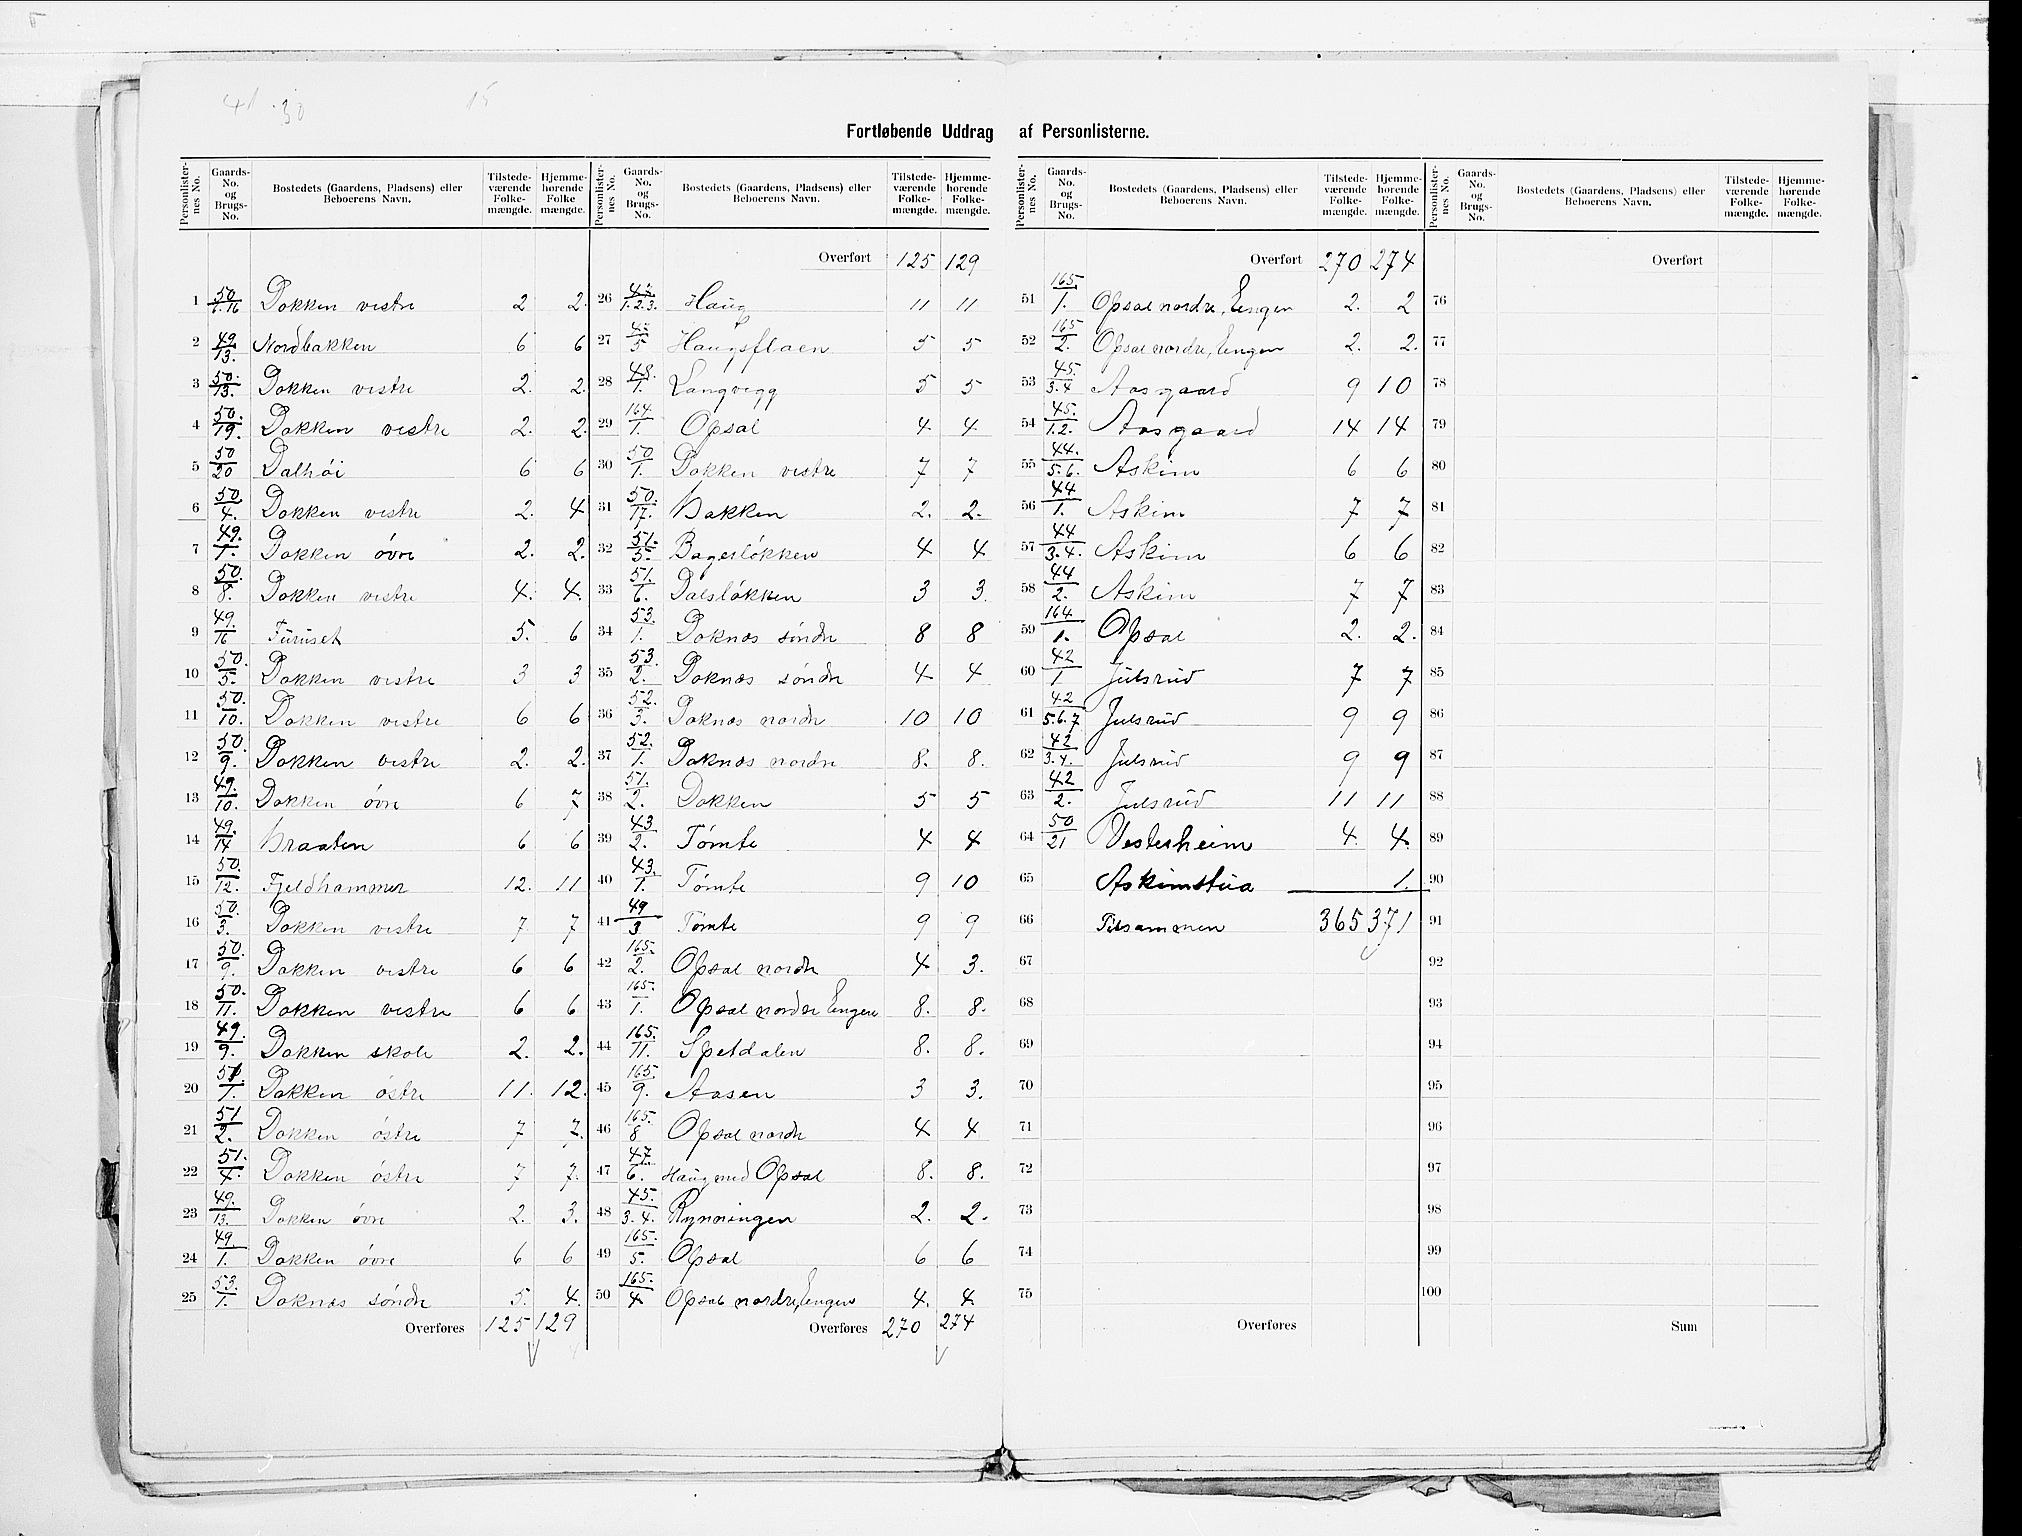 41 30 15
Fortløbende Uddrag af Personlisterne.
Personlister-nes No. | Gaards-No. og Brugs-No. | Bostedets (Gaardens, Pladsens) eller Beboerens Navn. | Tilstede-værende Folke-mængde. | Hjemme-hørende Folke mængde.
1 50/1.16 Dokken vestre 2 2.
2 49/13. Nordbakken 6 6
3 50./13. Dokken vestre 2. 2.
4 50./19. Dokken vestre 2. 2.
5 50/20 Dalhöi 6 6
6 50/4. Dokken vestre 2. 4
7 49./1. Dokken övre 2. 2.
8 50./8. Dokken vestre 4. 4.
9 49./16 Furuset 5. 6
10 50./5. Dokken vestre 3 3
11 50./10. Dokken vestre 6 6
12 50./9. Dokken vestre 2. 2.
13 49./10. Dokken övre 6 7
14 49./14 Braaten 6 6
15 50./12. Fjeldhammer 12. 11
16 50./3. Dokken vestre 7 7
17 50./9. Dokken vestre 6 6
18 50./11. Dokken vestre 6 6
19 49./9. Dokken skole 2. 2.
20 51./1. Dokken östre 11. 12.
21 51/2. Dokken östre 7 7.
22 51./4. Dokken östre 7 7.
23 49./13. Dokken övre 2. 3.
24 49./1. Dokken övre 6 6
25 53./1. Doknæs söndre 5. 4.
Overføres 125 129
Personlister-nes No. | Gaards-No. og Brugs-No. | Bostedets (Gaardens, Pladsens) eller Beboerens Navn. | Tilstede-værende Folke-mængde. | Hjemme-hørende Folke-mængde.
Overført 125 129
26 47/1.2.3. Haug 11 11
27 45/5 Haugsflaen 5 5
28 48./1. Langvegg 5 5
29 164./1. Opsal 4 4
30 50/1. Dokken vestre 7 7
31 50./17. Bakken 2. 2.
32 51./5. Bagerlökken 4 4
33 51./6. Dalslökken 3 3.
34 53./1. Doknæs söndre 8 8
35 53./2. Doknæs söndre 4 4
36 52./3. Doknæs nordre 10 10
37 52./1. Doknæs nordre 8. 8.
38 51./2. Dokken 5 5
39 43/2. Tömte 4 4
40 43./1. Tömte 9 10
41 49/3 Tömte 9 9
42 165./2. Opsal nordre 4 3.
43 165./1. Opsal nordre Engen 8. 8.
44 165./11. Speldalen 8. 8.
45 165./9. Aasen 3 3.
46 165./8 Opsal nordre 4 4
47 47./6. Haug med Opsal 8. 8.
48 45./3.4. Rynningen 2. 2.
49 165./5. Opsal 6 6
50 165./4 Opsal nordre, Engen 4. 4.
Overføres 270 274
Personlister-nes No. | Gaards-No. og Brugs-No. | Bostedets (Gaardens, Pladsens) eller Beboerens Navn. | Tilstede-værende Folke-mængde. | Hjemme-hørende Folke-mængde.
Overført 270 274
51 165./1. Opsal nordre, Engen 2. 2
52 165/2. Opsal nordre, Engen 2. 2.
53 45./3.4 Aasgaard 9 10
54 45./1.2. Aasgaard 14 14
55 44./5.6. Askim 6 6
56 44/1. Askim 7 7
57 44/3.4. Askim 6 6
58 44/2. Askim 7 7
59 164/1. Opsal 2. 2.
60 42/1 Julsrud 7 7
61 42/5.6.7 Julsrud 9 9
62 42/3.4. Julsrud 9 9
63 42/2. Julsrud 11 11
64 50/21 Vesterheim 4. 4.
65 Askimstua 1.
66 Tilsammen 365 371
67
68
69
70
71
72
73
74
75
Overføres
Personlister-nes No. | Gaards-No. og Brugs-No. | Bostedets (Gaardens, Pladsens) eller Beboerens Navn. | Tilstede-værende Folke-mængde. | Hjemme-hørende Folke-mængde.
Overført
76
77
78
79
80
81
82
83
84
85
86
87
88
89
90
91
92
93
94
95
96
97
98
99
100
Sum